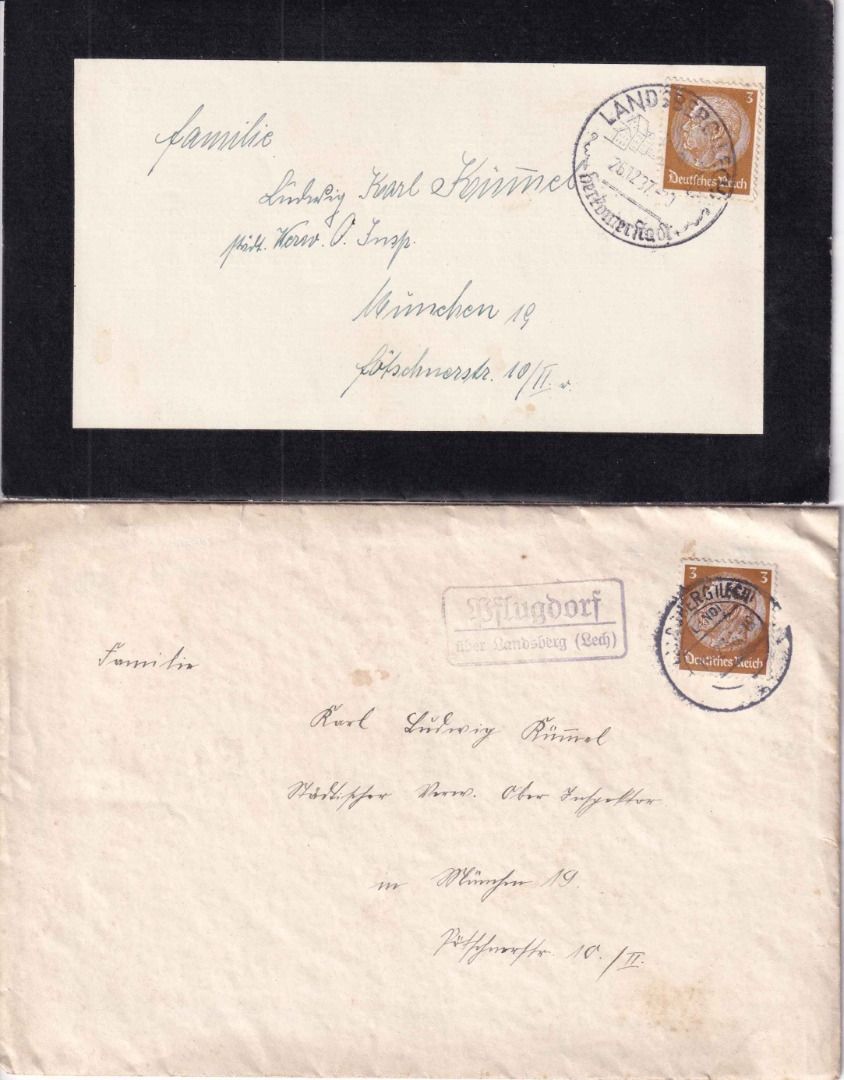 Familie
Ludwig Karl Kümmel
städt. Verw. O. Insp.
München 19
Pötschnerstr. 10/II. r.
LANDSBERG (LECH)
26.12.37
Herkomerstadt
3
Deutsches Reich
Pflugdorf
über Landsberg (Lech)
3 3
LANDSBERG (LECH)
Deutsches Reich
Familie
Karl Ludwig Kümmel
Städtischer Verw. Ober Inspektor
in München 19.
Pötschnerstr. 10./II.